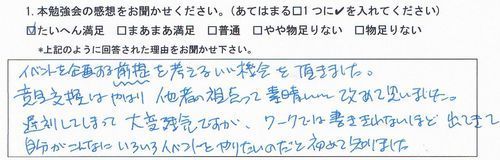 1. 本勉強会の感想をお聞かせください。(あてはまる□1つに✔を入れてください)
☑たいへん満足 □まあまあ満足 □普通 □やや物足りない □物足りない
*上記のように回答された理由をお聞かせ下さい。
イベントを企画する前提を考えるいい機会を頂きました。
意見交換はやはり他者の視点って素晴しい…改めて思いました。
遅刻してしまって大変残念ですが、ワークでは書ききれないほど出てきて
自分がこんなにいろいろイベントをやりたいのだと初めて知りました。